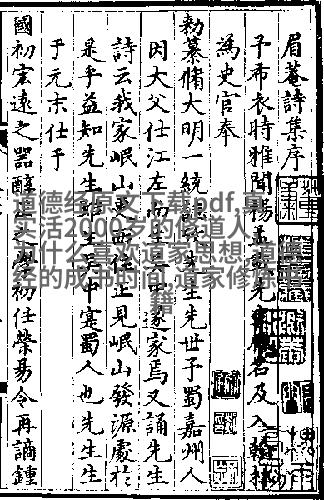 眉菴詩集序
予布衣時雅聞楊孟載先名及入翰林
為史官奉
勅纂脩大明一統誌先生先世予蜀嘉州人
因大父仕江左而生遂家焉又誦先生
詩云我家岷山更西住正見岷山發源處於
是乎益知先生雖生吳中寔蜀人也先生生
于元末仕于
國初宏遠之器醇正之學初任滎昜令再謫鍾
道德经原文下载pdf,真
实活2000岁的修道人,
为什么喜欢道家思想,道德
经的成书时间,道家修炼书
籍